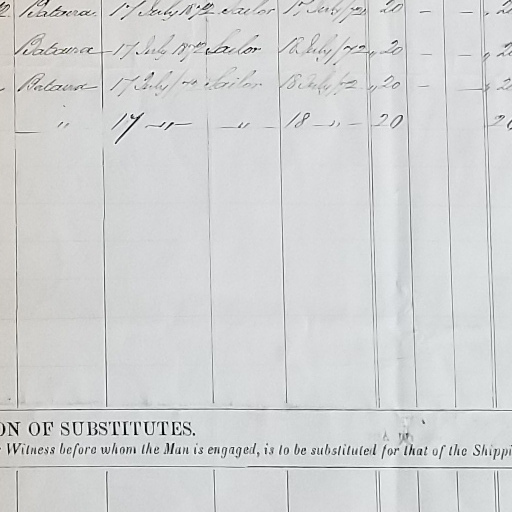 Batavia 17 July 1872 Sailor 17 July /72 " 20 — — " 2
Batavia 17 July 1872 Sailor 18 July /72 " 20 — — " 2
Batavia 17 July /72 Sailor 18 July /72 " 20 — — " 2
— " 17 — " — — " — 18 — " — 20 — 2
ON OF SUBSTITUTES.
Witness before whom the Man is engaged, is to be substituted for that of the Shippi